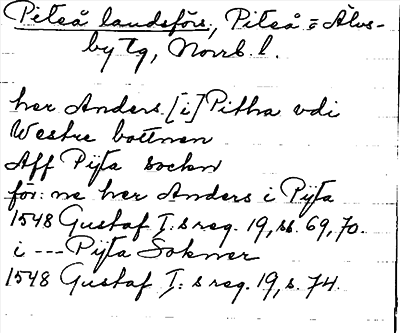 Piteå landsförs., Piteå o Älvs-
by tg, Norrb. l.
her Anders [i] Pitha vdi
Westre bottnen
Aff Pijta sockn
för: ne her Anders i Pijta
1548 Gustaf I:s reg. 19, ss. 69, 70.
i --- Pijta Sokner
1548 Gustaf I:s reg. 19, s. 74.